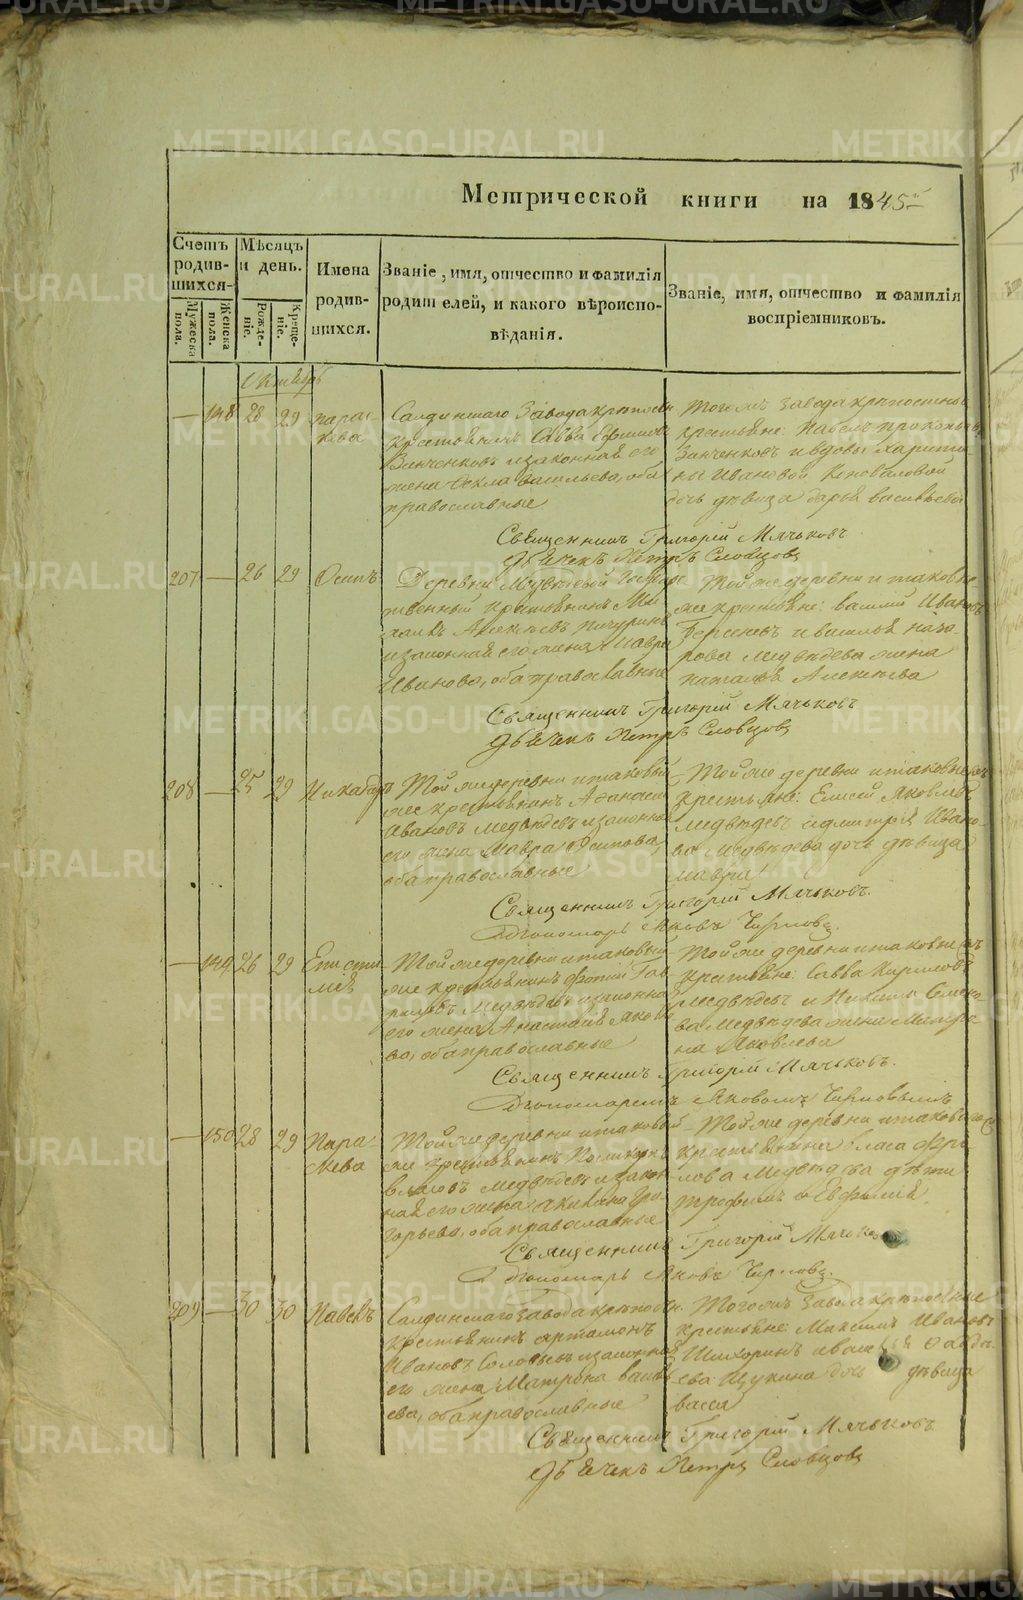 Метрической книги на 1845й
Счетъ родив- шихся.
Мужеска пола.
Женска пола.
Мѣсяцъ и день.
Рожде- ніе.
Креще- ніе.
Имена родив- шихся.
Званіе, имя, отчество и фамилія родителей, и какого вѣроиспо- вѣданія.
Званіе, имя, отчество и фамилія воспріемниковъ.
Октябрь
— 148 28 29 Пара- скева
Салдинскаго Завода крѣпостн.
крестьянинъ Савва Ефимовъ
Зенченковъ и законная его
жена Текла Васильева, оба
православные
Того жъ Завода крѣпостные
крестьяне: Павелъ Прокопьевъ
Зенченковъ и вдовы Харити-
ны Ивановой Коноваловой
дочь дѣвица Дарья Васильева
Священникъ Григорій Мячковъ
Дьячекъ Петръ Словцовъ
207 — 26 29 Осипъ
Деревни Медвѣдевой Государ-
ственный крестьянинъ Ми-
хаилъ Алексѣевъ Пичугинъ
и законная его жена Мавра
Иванова, оба православные
Той же деревни и таковые
же крестьяне: Василій Ивановъ
Берсеневъ и Василья Наза-
рова Медвѣдева жена
Наталья Алексѣева
Священникъ Григорій Мячковъ
Дьячекъ Петръ Словцовъ
208 — 25 29 Никаноръ
Той же деревни и таковый
же крестьянинъ Афанасій
Ивановъ Медвѣдевъ и законная
его жена Мавра Осипова,
оба православные
Той же деревни и таковые же
крестьяне: Елисей Яковлевъ
Медвѣдевъ и Димитрія Ивано-
ва Медвѣдева дочь дѣвица
Мавра
Священникъ Григорій Мячковъ.
Пономарь Яковъ Черновъ.
— 149 26 29 Еписти-
мія
Той же деревни и таковый
же крестьянинъ Фотій Гав-
риловъ Медвѣдевъ и законная
его жена Анастасія Яковле-
ва, оба православные
Той же деревни и таковые же
крестьяне: Савва Кириловъ
Медвѣдевъ и Никиты Семено-
ва Медвѣдева жена Матре-
на Яковлева
Священникъ Григорій Мячковъ.
Пономаремъ Яковомъ Черновымъ
— 150 28 29 Пара-
скева
Той же деревни и таковый
же крестьянинъ Поликарпъ
Власовъ Медвѣдевъ и закон-
ная его жена Акилина Гри-
горьева, оба православные
Той же деревни и таковаго же
крестьянина Власа
Медвѣдева дѣти
Трофимъ и Евфимія
Священникъ Григорій Мячковъ
Пономарь Яковъ Черновъ.
209 — 30 30 Павелъ
Салдинскаго Завода крѣпостн.
крестьянинъ Артамонъ
Ивановъ Соловьевъ и законная
его жена Матрона Василь-
ева, оба православные
Того жъ Завода крѣпостные
крестьяне: Максимъ Ивановъ
дочь дѣвица
Священникъ Григорій Мячковъ
Дьячекъ Петръ Словцовъ
METRIKI.GASO-URAL.RU